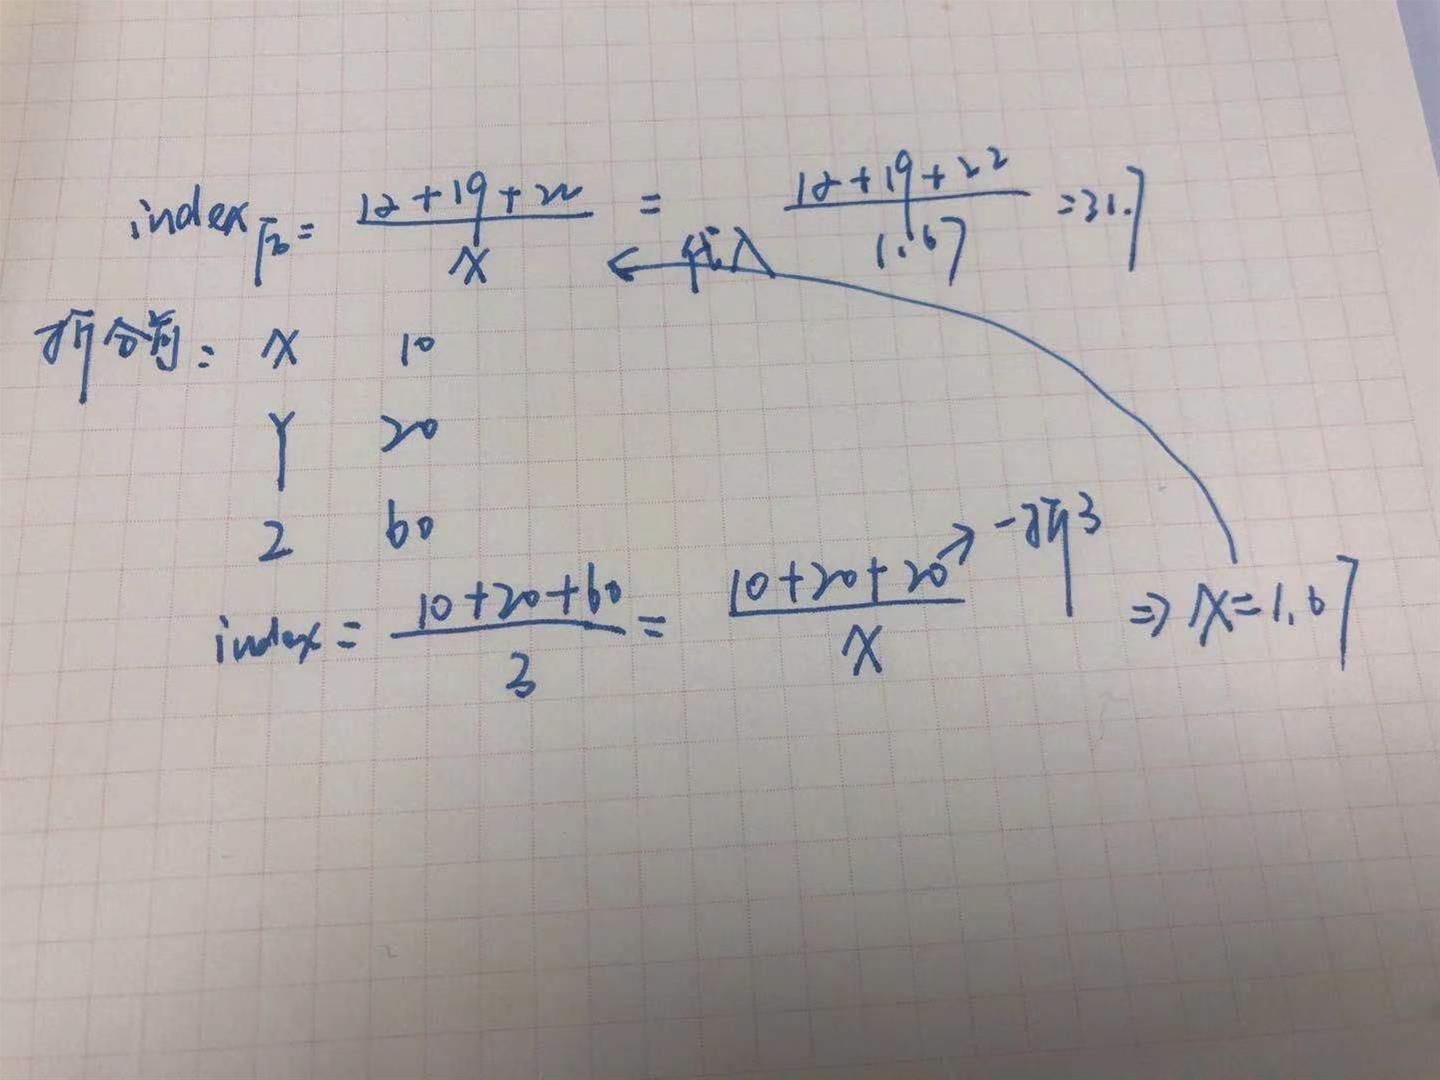 index后 = 12+19+22 / X = 12+19+22 / 1.67 = 31.7
← 代入
拆分前: X 10
Y 20
Z 60
index = 10+20+60 / 3 = 10+20+20 / X ↗ 一拆3 ⇒ X=1.67